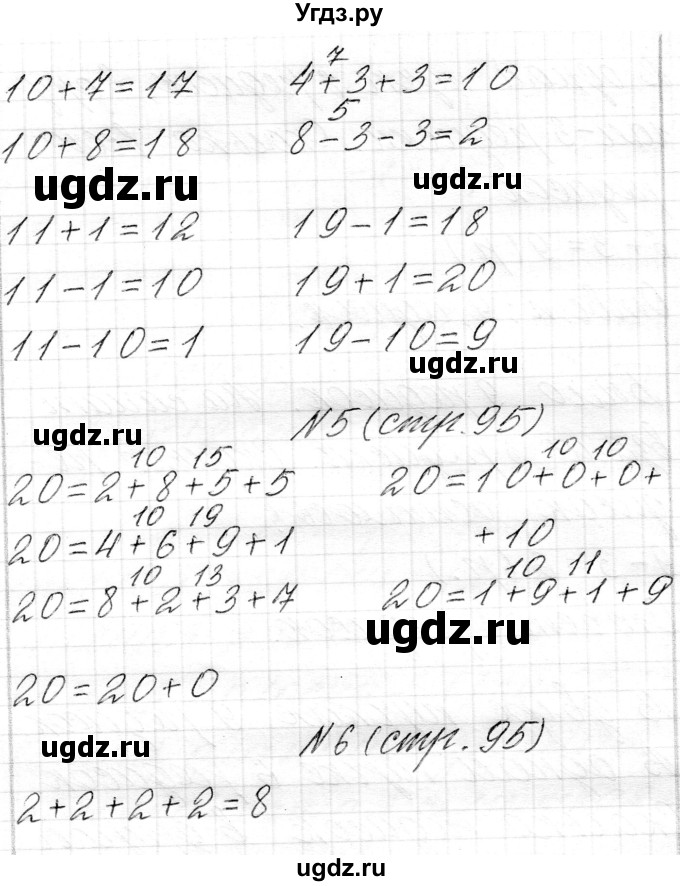 Угдз.ру
7
10+7=17 4+3+3=10
5
10+8=18 8-3-3=2
ugdz.ru ugdz.ru
11+1=12 19-1=18
11-1=10 19+1=20
11-10=1 19-10=9
ugdz.ru
N5 (стр. 95)
ugdz.ru
10 15 10 10
20=2+8+5+5 20=10+0+0+
10 19
20=4+6+9+1 +10
10 13 10 11
20=8+2+3+7 20=1+9+1+9
ugdz.ru
20=20+0
N6 (стр. 95)
ugdz.ru
2+2+2+2=8
ugdz.ru